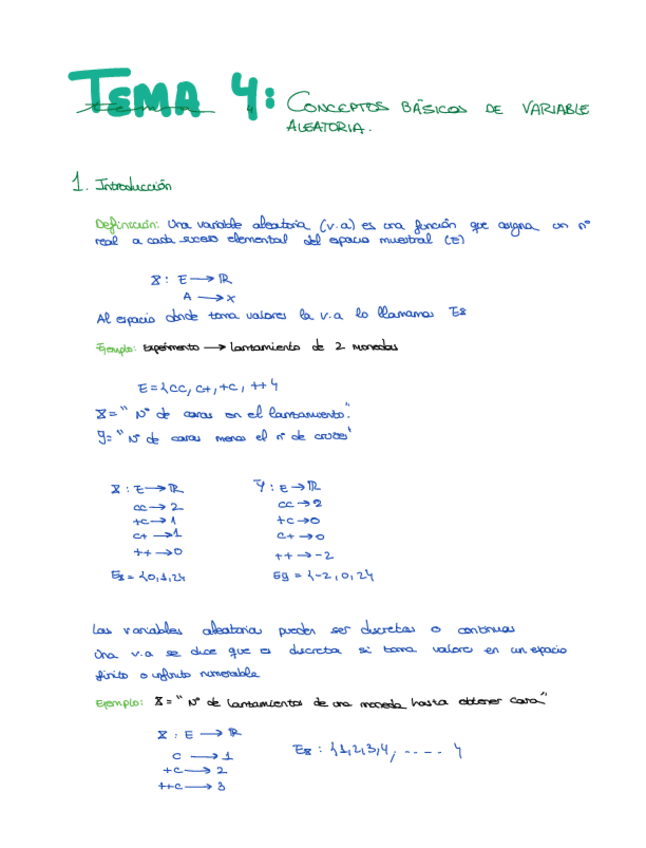 TEMA 4: CONCEPTOS BÁSICOS DE VARIABLE
ALEATORIA.
1. Introducción
Definición: Una variable aleatoria (v.a) es una función que asigna un nº
real a cada suceso elemental del espacio muestral (E)
X : E → ℝ
A → x
Al espacio donde toma valores la v.a lo llamamos EX
Ejemplo: Experimento → Lanzamiento de 2 monedas
E = {CC, C+, +C, ++}
X = "Nº de caras en el lanzamiento".
Y = "Nº de caras menos el nº de cruces"
X : E → ℝ
CC → 2
+C → 1
C+ → 1
++ → 0
EX = {0,1,2}
Y : E → ℝ
CC → 2
+C → 0
C+ → 0
++ → -2
Ey = {-2, 0, 2}
Las variables aleatorias pueden ser discretas o continuas
Una v.a se dice que es discreta si toma valores en un espacio
finito o infinito numerable
Ejemplo: X = "Nº de lanzamientos de una moneda hasta obtener cara"
X : E → ℝ
C → 1
+C → 2
++C → 3
EX : {1,2,3,4, ..... }